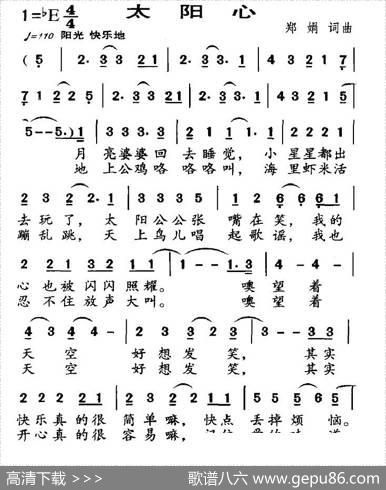 太阳心
1=♭E 4/4
♩=110 阳光 快乐地
郑娟 词曲
(5 | 2· 3 3 2 1 | 2· 3 3 4 | 4 3 2 1 7 |
7 1 2 2 5 | 2· 3 3 2 1 | 2· 3 3 4 | 4 3 2 1 5 |
5 - - 5·) 1 | 3 3 3 3· | 2 1 1 1· | 1 2 3 3 3 |
月 亮婆婆回 去睡觉, 小 星星都出
地 上公鸡咯 咯咯叫, 海 里虾米活
2 3 2 2· 1 | 3 3 3 5 | 1 2 6 6 6 1 |
去玩了, 太 阳公公张 嘴在笑, 我的
蹦乱跳, 天 上鸟儿唱 起歌谣, 我也
2 2 1 2 3 3 | 2 1 2 1 | 1 - - 1· 3 | 4 - 4 - |
心也被闪闪照耀。 噢望着
忍不住放声大叫。 噢望着
4 3 4 - | 2 3 2 3 | 3 2 3 - | 3 - 3 3 |
天空 好想发笑, 其实
天空 好想发笑, 其实
2 2 2 2 1 | 2 3 2 1 | 6 6 6 5 | 5 5 5 6 5 |
快乐真的很 简单嘛, 快点 丢掉烦恼。
开心真的很 容易嘛,
高清下载 >>>
歌谱八六 www.gepu86.com